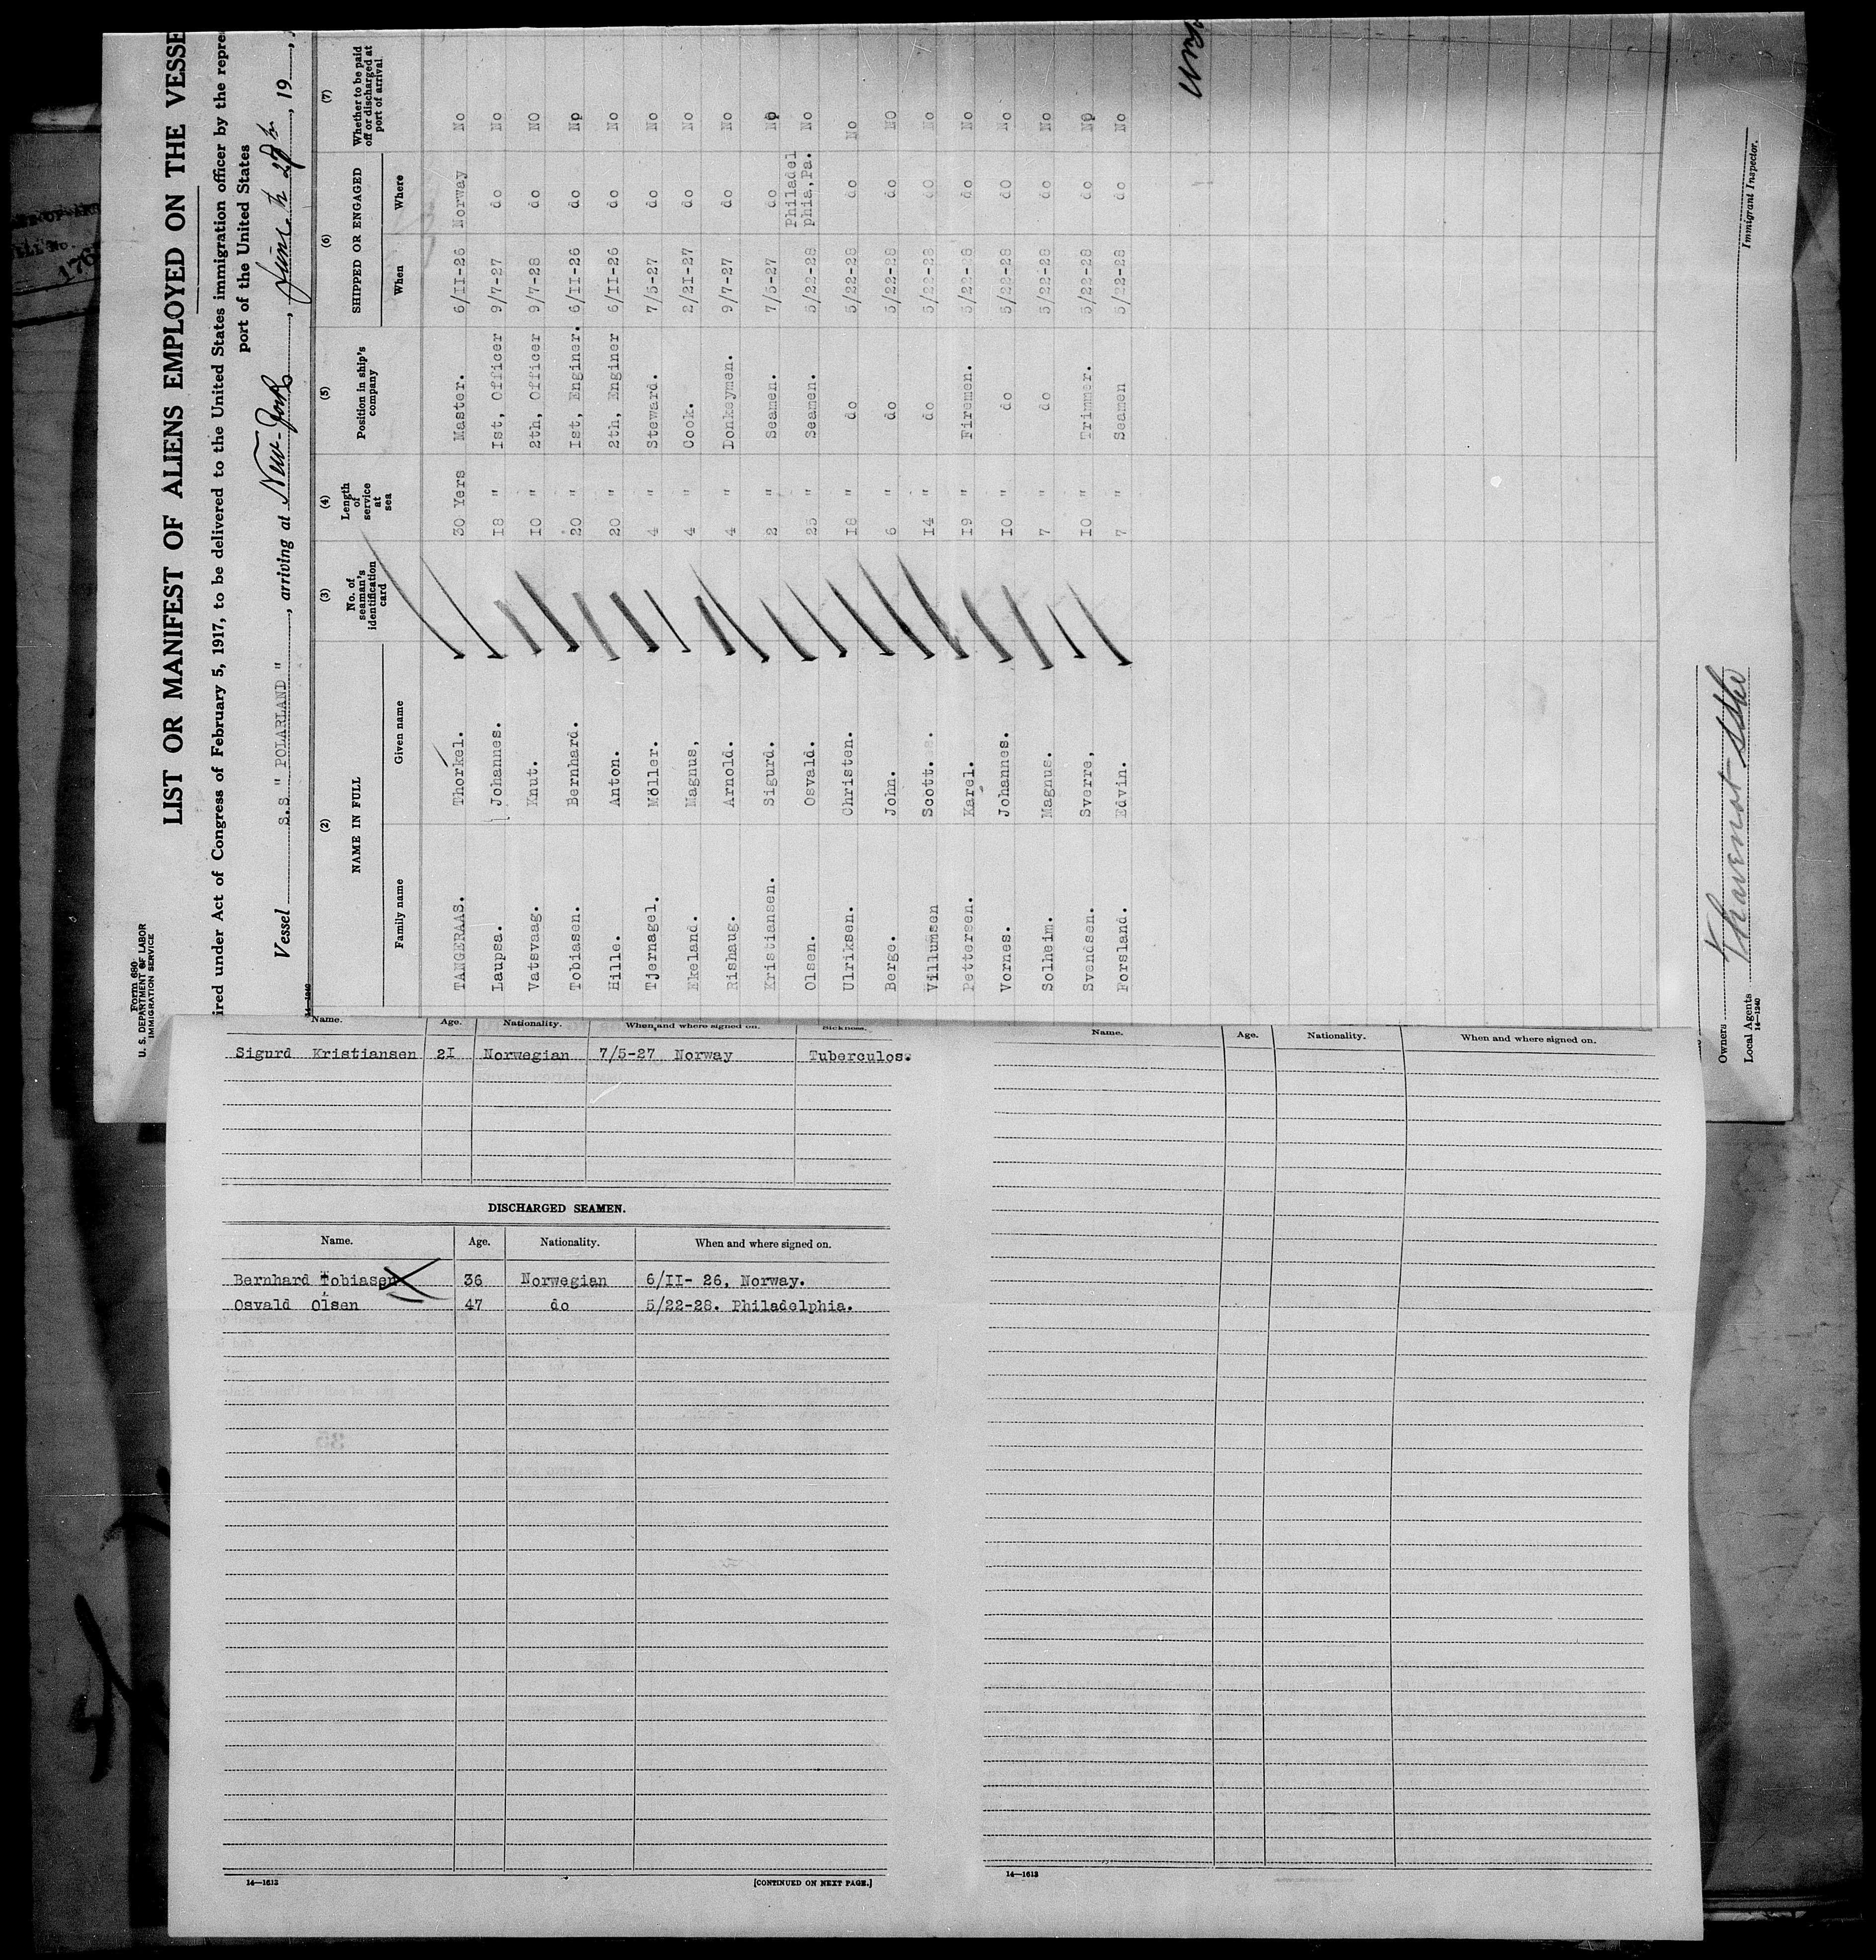 Form 680
U. S. DEPARTMENT OF LABOR
IMMIGRATION SERVICE
LIST OR MANIFEST OF ALIENS EMPLOYED ON THE VESSE
ired under Act of Congress of February 5, 1917, to be delivered to the United States immigration officer by the repre
port of the United States
Vessel S.S " POLARLAND " , arriving at New-York , June 27th , 19
(2) (3) (4) (5) (6) (7)
NAME IN FULL No. of seaman's identification card Length of service at sea Position in ship's company SHIPPED OR ENGAGED Whether to be paid off or discharged at port of arrival
Family name Given name When Where
TANGERAAS. Thorkel. 30 Yers Master. 6/II-26 Norway No
Laupsa. Johannes. I8 " Ist, Officer 9/7-27 do No
Vatsvaag. Knut. I0 " 2th, Officer 9/7-28 do NO
Tobiasen. Bernhard. 20 " Ist, Enginer. 6/II-26 do No
Hille. Anton. 20 " 2th, Enginer 6/II-26 do No
Tjernagel. Möller. 4 " Steward. 7/5-27 do No
Ekeland. Magnus, 4 " Cook. 2/2I-27 do No
Rishaug. Arnold. 4 " Donkeymen. 9/7-27 do No
Kristiansen. Sigurd. 2 " Seamen. 7/5-27 do No
Olsen. Osvald. 25 " Seamen. 5/22-28 Philadel phia,Pa. No
Ulriksen. Christen. I8 " do 5/22-28 do No
Berge. John. 6 " do 5/22-28 do NO
Villumsen Scott. I4 " do 5/22-28 do No
Pettersen. Karel. I9 " Firemen. 5/22-28 do No
Vornes. Johannes. I0 " do 5/22-28 do No
Solheim. Magnus. 7 " do 5/22-28 do No
Svendsen. Sverre, I0 " Trimmer. 5/22-28 do No
Forsland. Edvin. 7 " Seamen 5/22-28 do No
Immigrant Inspector.
Owners
Local Agents
14—1240
Name. Age. Nationality. When and where signed on. Sickness.
Sigurd Kristiansen 2I Norwegian 7/5-27 Norway Tuberculos.
DISCHARGED SEAMEN.
Name. Age. Nationality. When and where signed on.
Bernhard Tobiasen 36 Norwegian 6/II- 26, Norway.
Osvald Olsen 47 do 5/22-28. Philadelphia.
14—1613 [CONTINUED ON NEXT PAGE.]
Name. Age. Nationality. When and where signed on.
14—1613